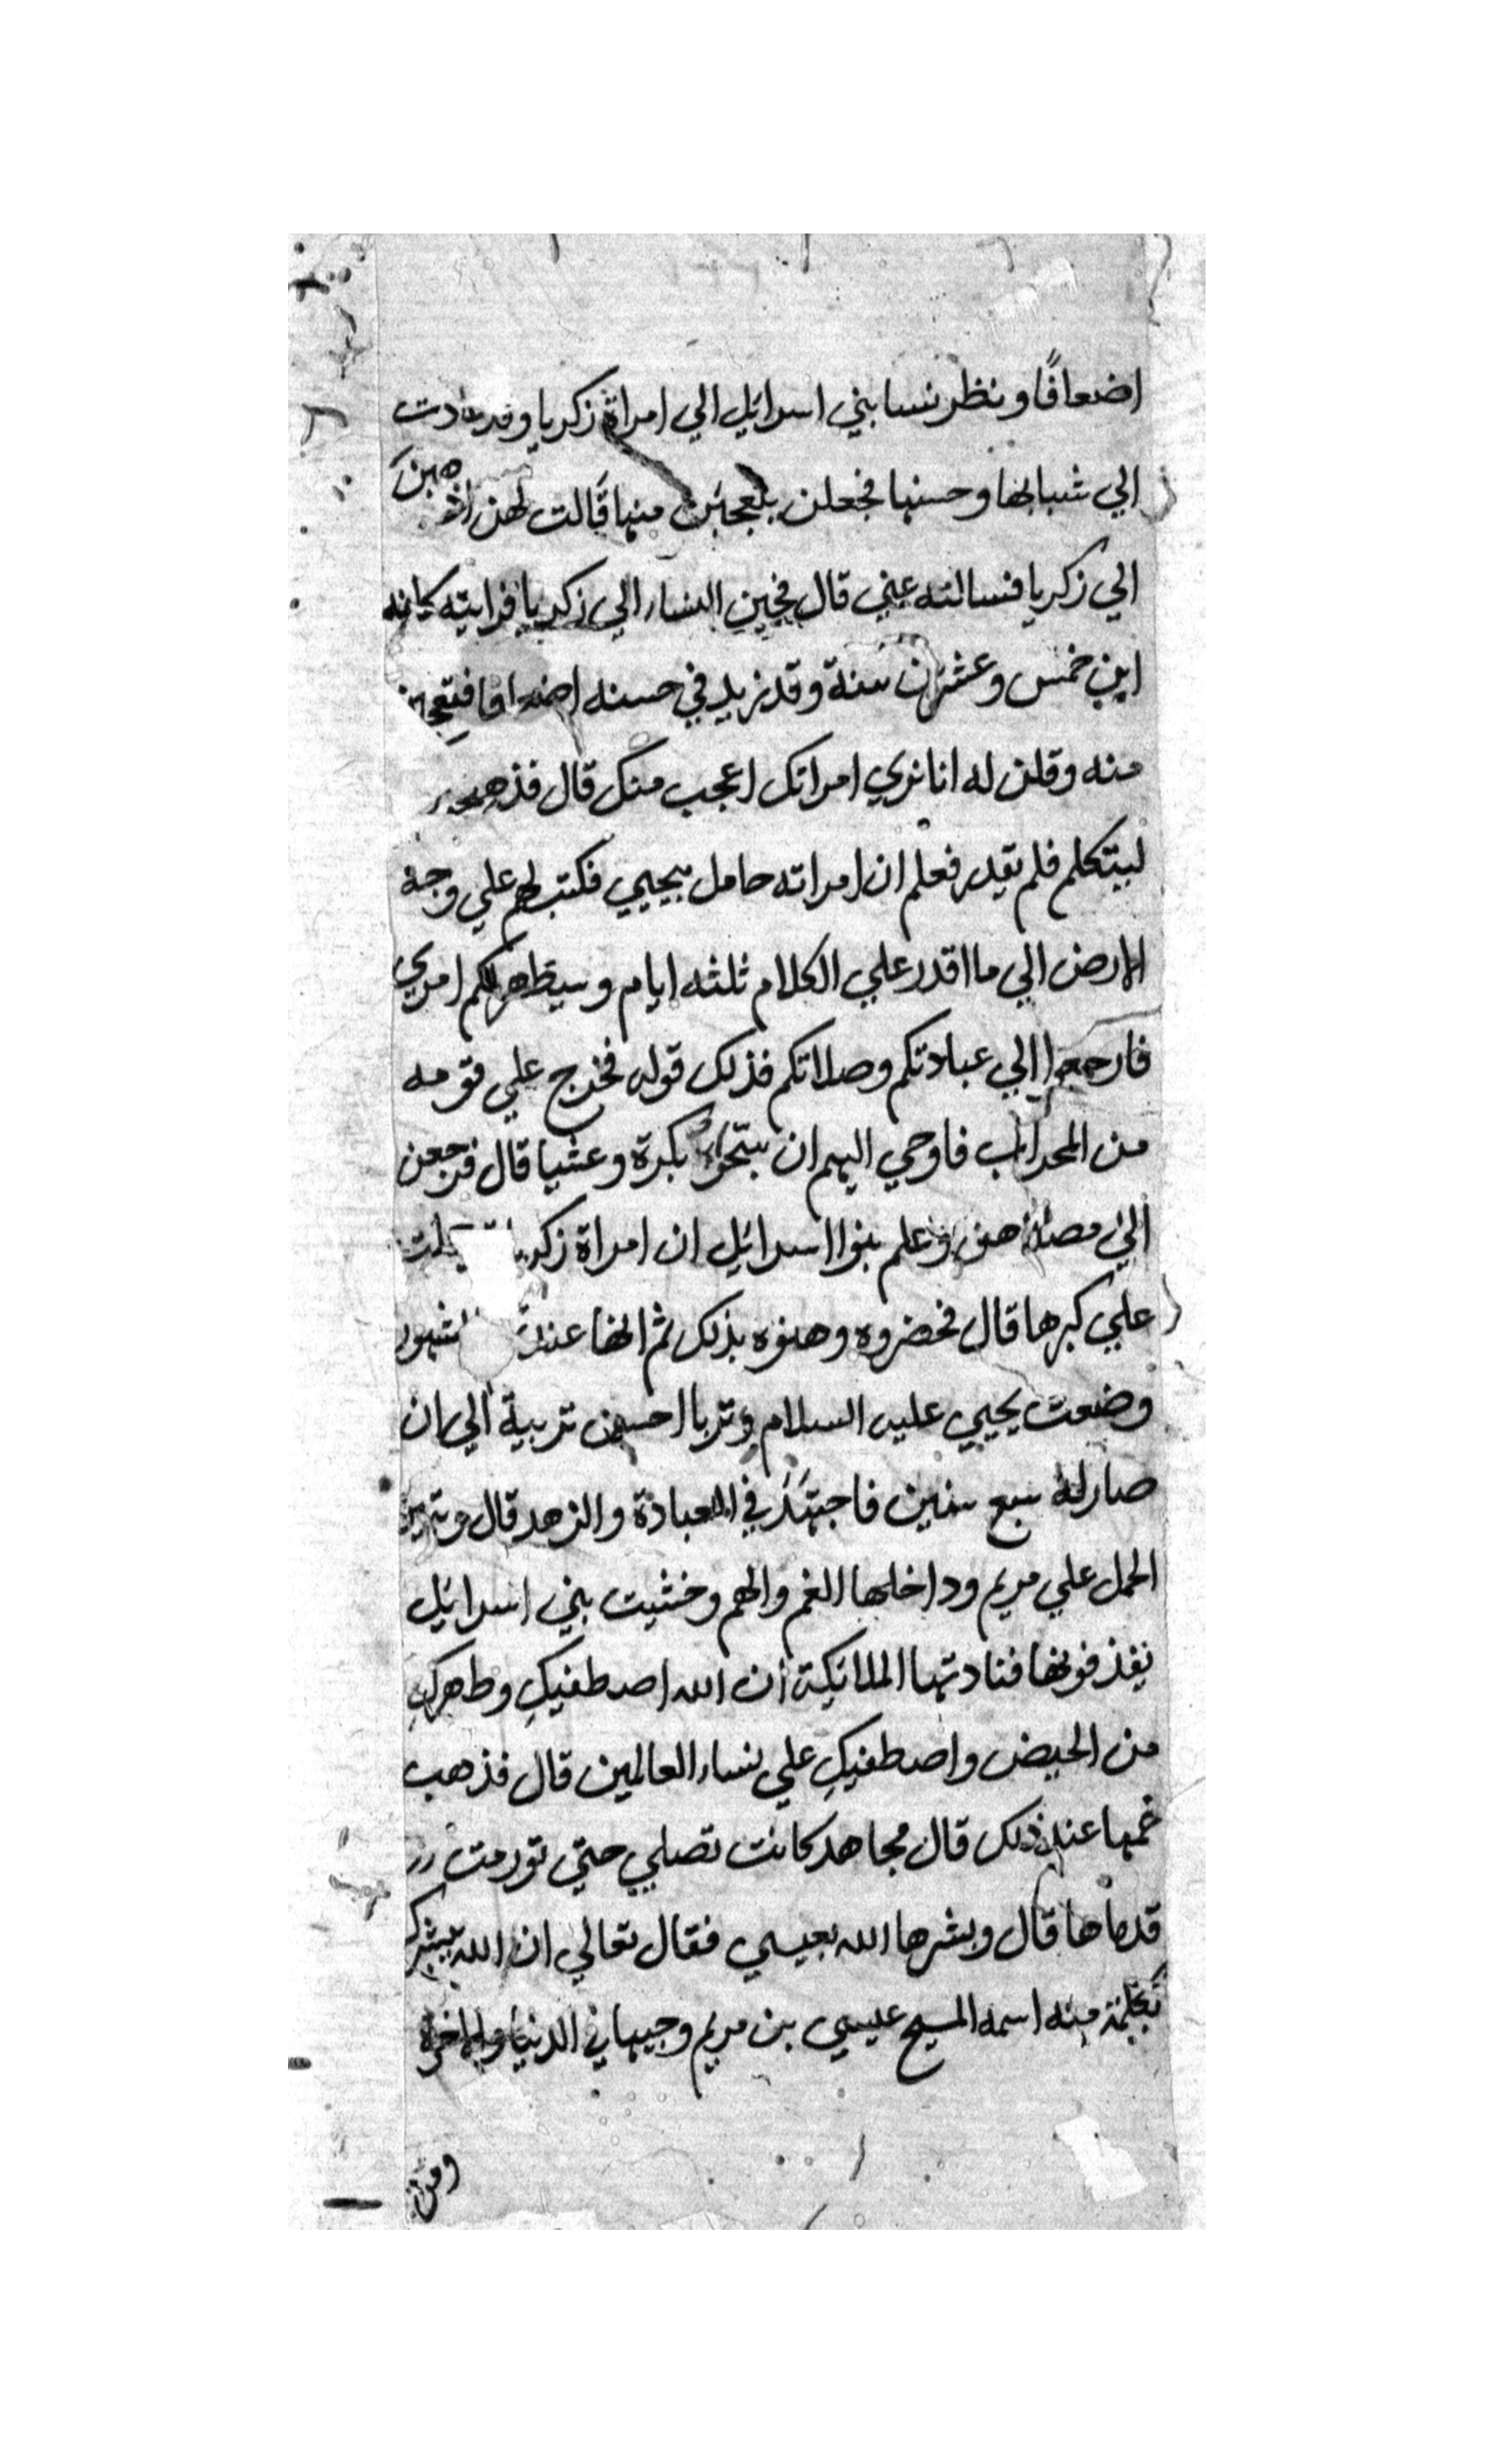 اضعافًا ونظر نسا بني اسرائيل الي امراة زكريا وقد عادت
الي شبابها وحسنها فجعلن يتعجبن منها قالت لهن اذهبن
الي زكريا فنسالنه عني قال فجين النساء الي زكريا فرايته كانه
ابن خمس وعشرين سنة وقد زيد في حسنه اضعافا فتعجبن
منه وقلن له انا نري امراتك اعجب منك قال فذهب
ليتكلم فلم يقدر فعلم ان امراته حامل بيحيي فكتب لهم علي وجه
الارض اني ما اقدر علي الكلام ثلثه ايام وسيظهر لكم امري
فارجعوا الي عبادتكم وصلاتكم فذلك قوله فخرج علي قومه
من المحراب فاوحي اليهم ان سبحوا بكرة وعشيا قال فرجعن
الي وعلم بنوا اسرائيل ان امراة زكريا
علي كبرها قال فحضروه وهنوه بذلك ثم انها عند
وضعت يحيي عليه السلام وتربا احسن تربية الي ان
صار له سبع سنين فاجتهد في العبادة والزهد قال
الحمل علي مريم وداخلها الغم والهم وخشيت بني اسرائيل
يقذفونها فنادتها الملائكة ان الله اصطفيكِ وطهركِ
من الحيض واصطفيكِ علي نساء العالمين قال فذهب
غمها عند ذلك قال مجاهد كانت تصلي حتي تورمت
قدماها قال وبشرها الله بعيسي فقال تعالي ان الله يبشرك
بكلمة منه اسمه المسيح عيسي بن مريم وجيها في الدنيا والاخرة
ومن